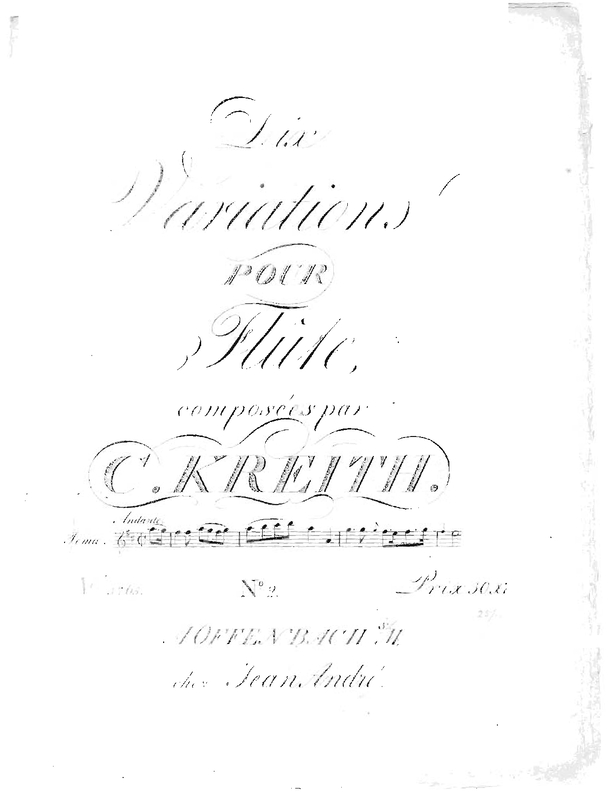 Dix
Variations
POUR
Flûte,
composées par
C. KREITH.
Andante
Tema.
No. 2.
Prix 30 Xr
A OFFENBACH s/M.
chez Jean André.